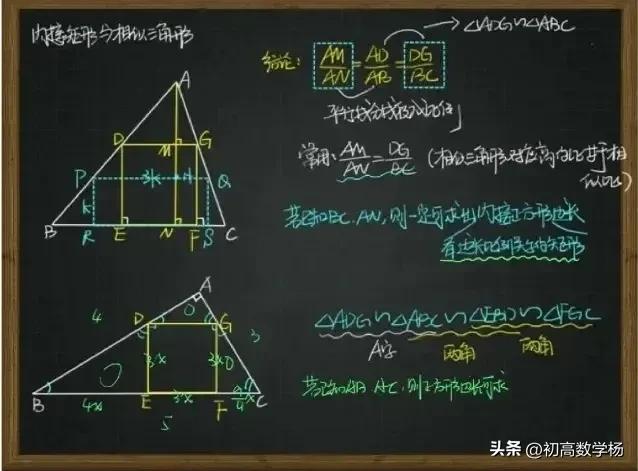 内接矩形与相似三角形
△ADG∽△ABC
结论: AM/AN = AD/AB = DG/BC
平行线分线段成比例
常用: AM/AN = DG/BC (相似三角形对应高的比等于相似比)
若已知BC、AN, 则一定可求出内接正方形边长
A
D
M
G
P
3k
Q
k
B
R
E
N
F
S
C
△ADG∽△ABC∽△EBD∽△FGC
A字
两角
两角
若已知AB、AC, 则正方形边长可求
A
4
3
D
G
3x
3x
B
4x
E
3x
F
C
5
头条 @初高数学杨